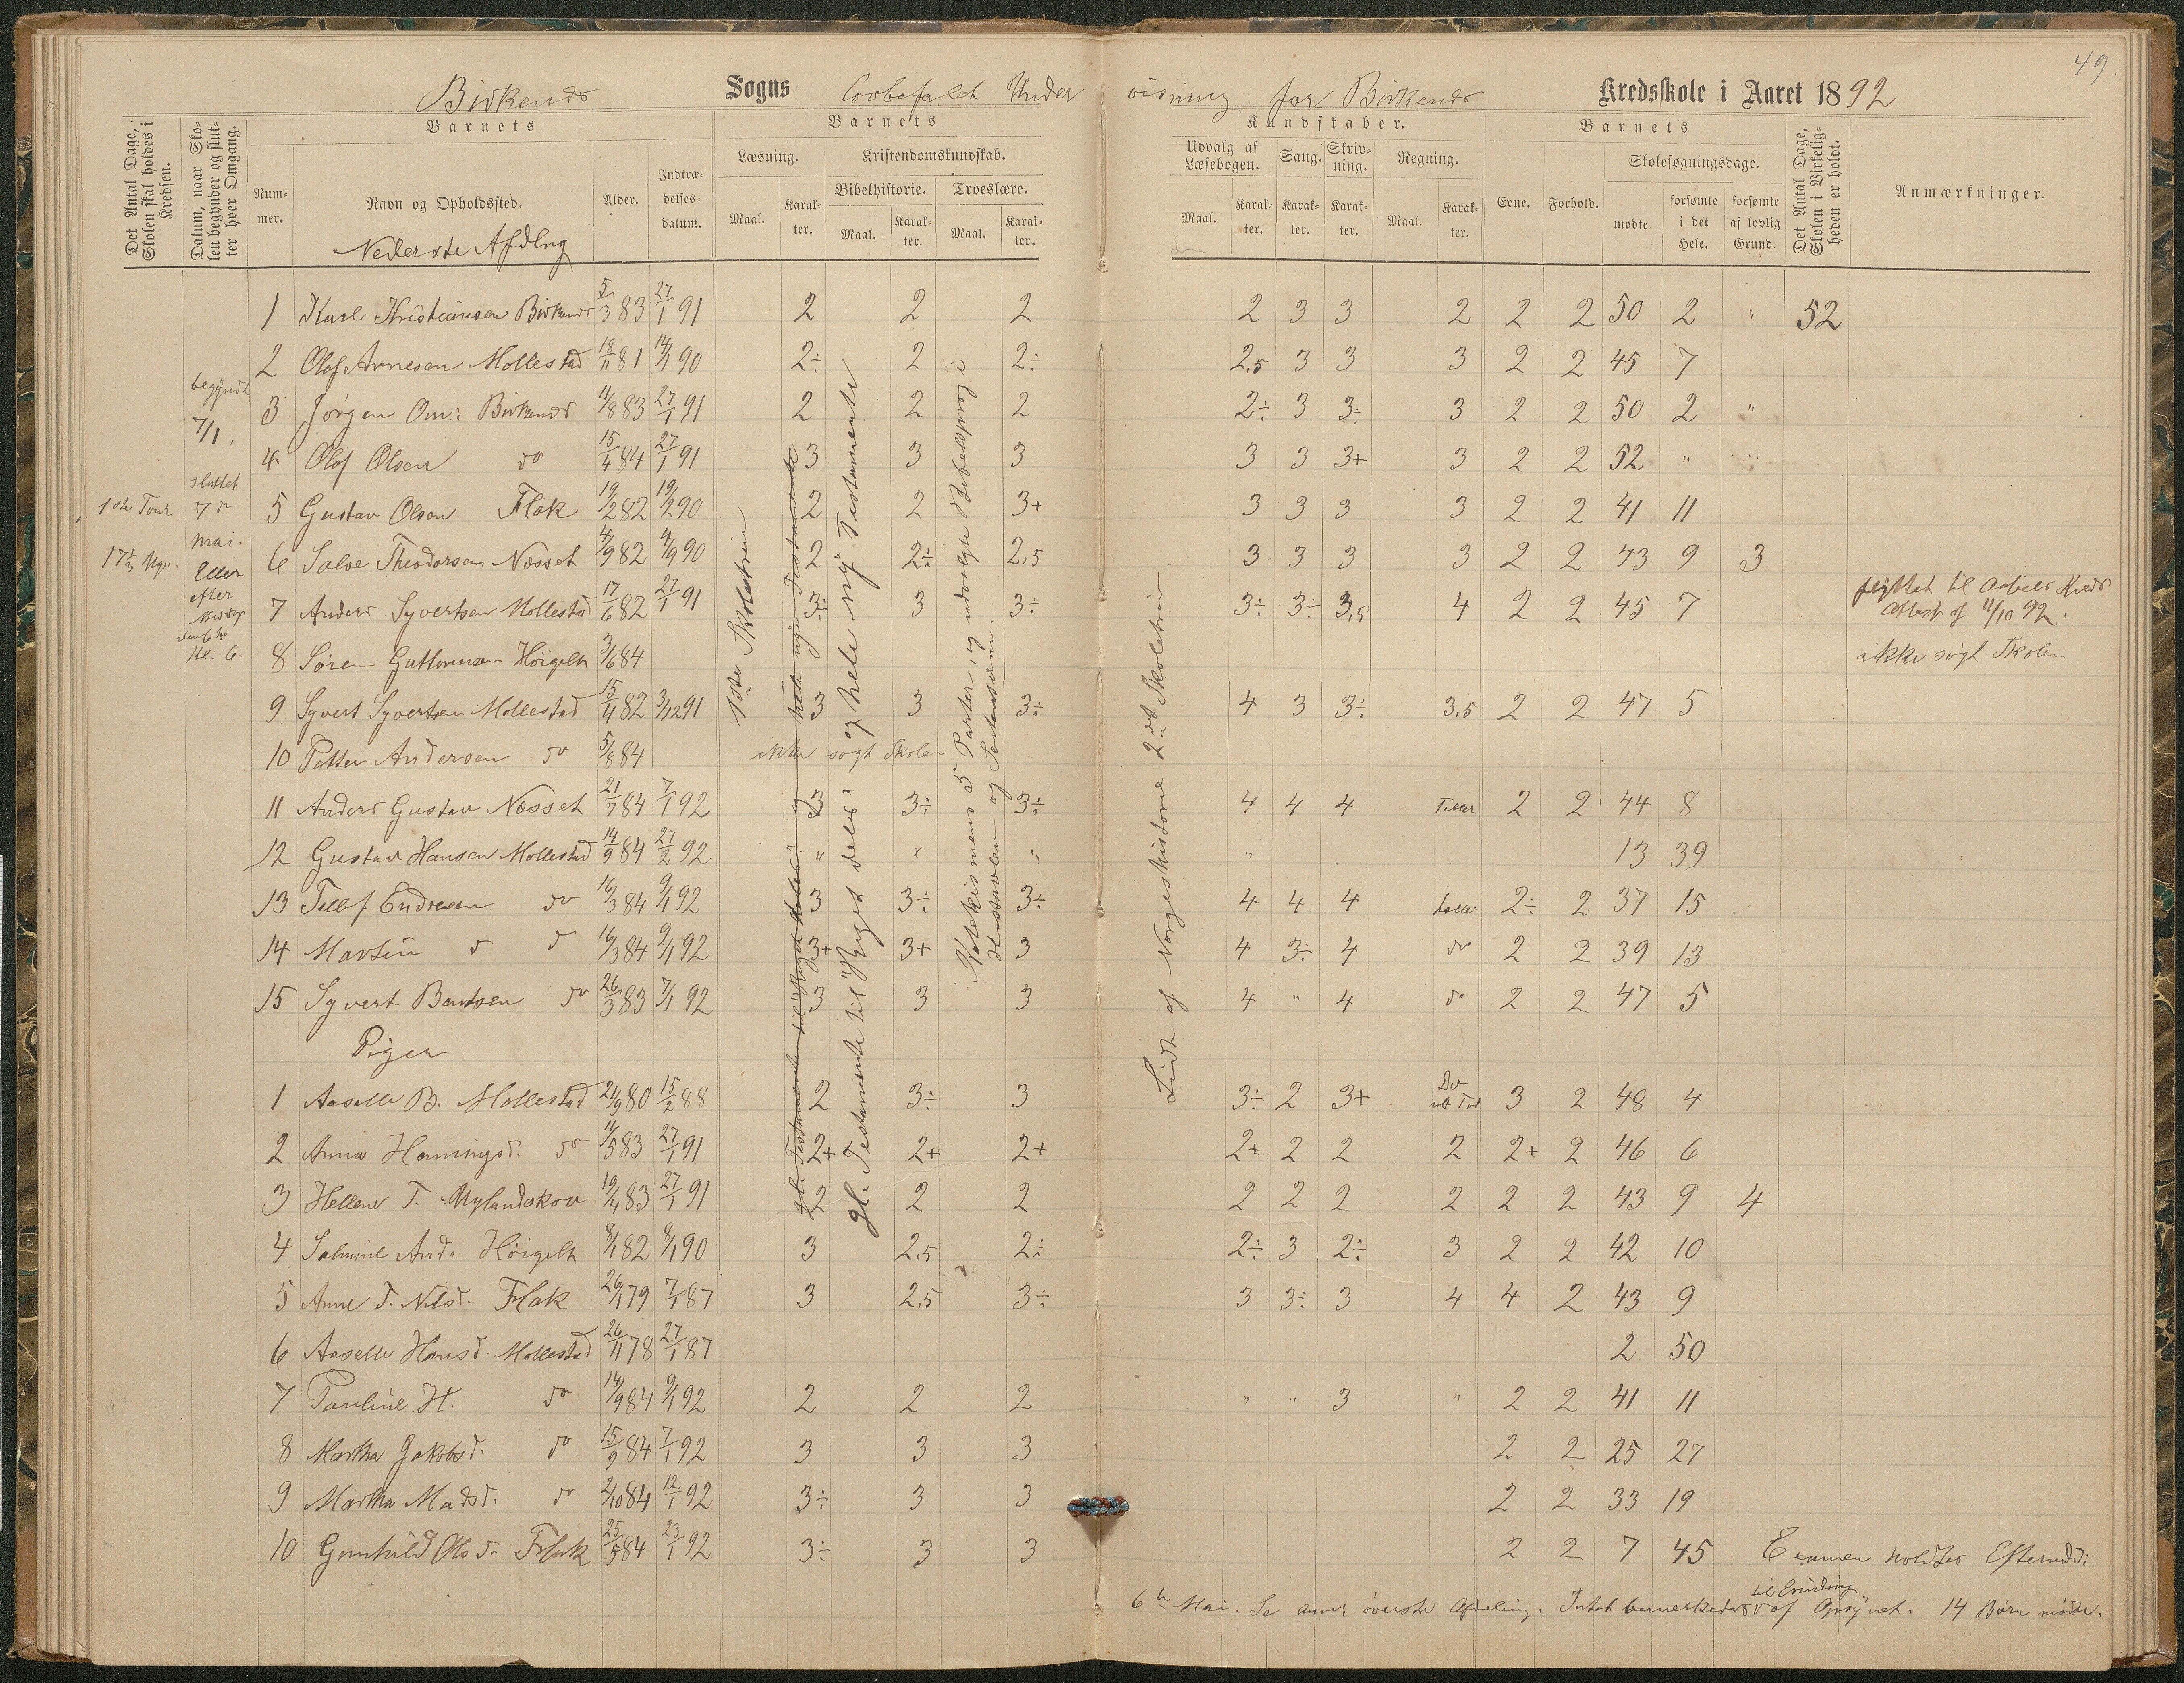 49.
Birkenes Sogns lovbefalet Undervisning for Birkenes Kredsskole i Aaret 1892
Det Antal Dage, Skolen skal holdes i Kredsen.
Datum, naar Skolen begynder og slutter hver Omgang.
Barnets
Nummer.
Navn og Opholdssted.
Alder.
Indtrædelsesdatum.
Barnets
Læsning.
Maal.
Karakter.
Kristendomskundskab.
Bibelhistorie.
Maal.
Karakter.
Troeslære.
Maal.
Karakter.
Kundskaber.
Udvalg af Læsebogen.
Maal.
Karakter.
Sang.
Karakter.
Skrivning.
Karakter.
Regning.
Maal.
Karakter.
Barnets
Evne.
Forhold.
Skolesøgningsdage.
mødte
forsømte i det Hele.
forsømte af lovlig Grund.
Det Antal Dage, Skolen i Virkeligheden er holdt.
Anmærkninger.
Nederste Afdlng
begyndt
7/1.
sluttet
7de
mai.
Eller
efter
Middag
den 6te
Kl. 6.
1ste Tour
17 1/3 Uge.
1 Karl Kristiansen Birkenes 5/3 83 27/1 91 2 2 2 2 3 3 2 2 2 50 2 " 52
2 Olof Arnesen Mollestad 18/11 81 14/1 90 2÷ 2 2÷ 2,5 3 3 3 2 2 45 7
3 Jørgen Om: Birkenes 11/8 83 27/1 91 2 2 2 2÷ 3 3÷ 3 2 2 50 2 "
4 Olof Olsen do 15/4 84 27/1 91 3 3 3 3 3 3+ 3 2 2 52 "
5 Gustav Olsen Flak 19/2 82 19/2 90 2 2 3+ 3 3 3 3 2 2 41 11
6 Salve Theodorsen Næsset 4/9 82 4/9 90 2 2÷ 2,5 3 3 3 3 2 2 43 9 3
7 Anders Syvertsen Mollestad 17/6 82 27/1 91 3÷ 3 3÷ 3÷ 3÷ 3,5 4 2 2 45 7 flyttet til Kreds
Attest af 11/10 92.
8 Søren Guttormsen Höigelt 3/6 84 ikke søgt Skolen
9 Syvert Syvertsen Mollestad 15/4 82 3/12 91 3 3 3÷ 4 3 3÷ 3,5 2 2 47 5
10 Petter Andersen do 5/8 84 ikke søgt Skolen
11 Anders Gustav Næsset 21/7 84 7/1 92 3 3÷ 3÷ 4 4 4 Tæller 2 2 44 8
12 Gustav Hansen Mollestad 14/9 84 27/2 92 " " " " 13 39
13 Tellef Endresen do 16/3 84 9/1 92 3 3÷ 3÷ 4 4 4 2÷ 2 37 15
14 Martin d d 16/3 84 9/1 92 3+ 3+ 3 4 3÷ 4 do 2 2 39 13
15 Syvert Bentsen do 26/3 83 7/1 92 3 3 3 4 " 4 do 2 2 47 5
Piger
1 Aaselle B. Mollestad 21/9 80 15/2 88 2 3÷ 3 3÷ 2 3+ Do 3 2 48 4
2 Anna Henningsd. do 11/5 83 27/1 91 2+ 2+ 2+ 2+ 2 2 2 2+ 2 46 6
3 Hellene T. Nylandskov 19/4 83 27/1 91 2 2 2 2 2 2 2 2 2 43 9 4
4 Salmine And. Höigelt 8/1 82 8/1 90 3 2,5 2÷ 2÷ 3 2÷ 3 2 2 42 10
5 Anne T. Nilsd. Flak 26/1 79 7/1 87 3 2,5 3÷ 3 3÷ 3 4 4 2 43 9
6 Aaselle Hansd. Mollestad 26/11 78 27/1 87 2 50
7 Pauline H. do 14/9 84 9/1 92 2 2 2 " " 3 " 2 2 41 11
8 Martha Jakobsd. do 15/9 84 7/1 92 3 3 3 2 2 25 27
9 Martha Madsd. do 2/10 84 12/1 92 3÷ 3 3 2 2 33 19
10 Gunhild Olsd. Flak 25/5 84 23/1 92 3÷ 3 3 2 2 7 45
1ste Skoletrin
gl. Testamente til "Riget deles" og hele nye Testamente
gl. Testamente til "Riget deles" og hele ny Testamente
Katekismens 5 Parter, og udvalgte Bibelsprog i
Hustavlen og
Lidt af Norgeshistorie 2det Skoletrin
Examen holdtes Eftermdd:
6te Mai. Se anm: øverste Afdeling. Intet bemerkedes til Erindring af Opsynet. 14 Børn mødte.